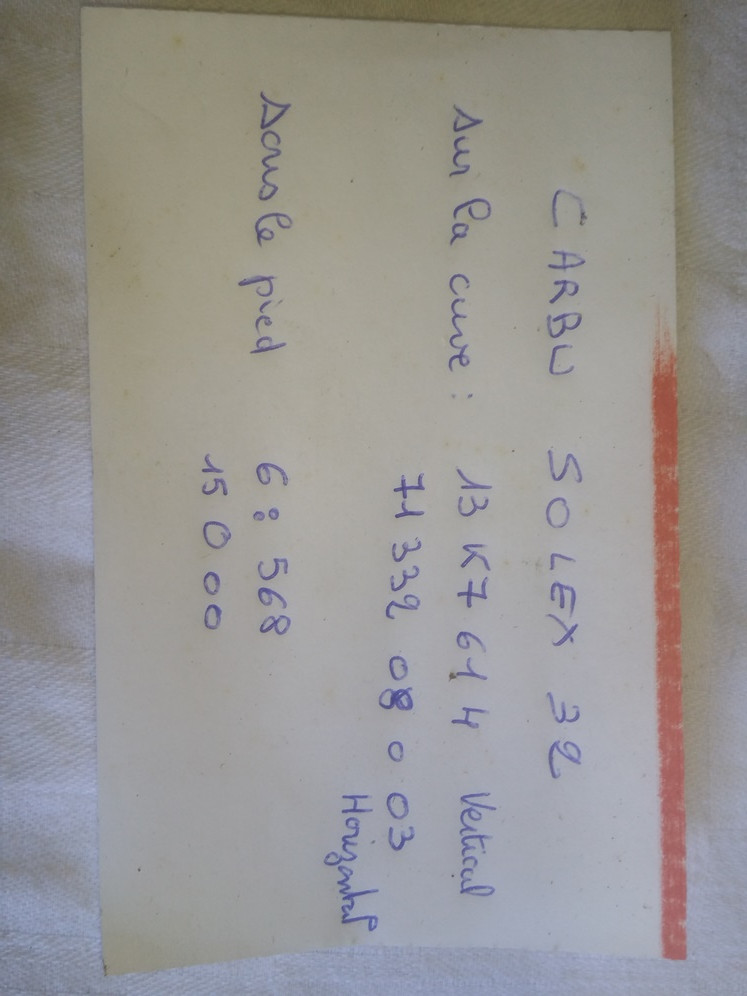 CARBU SOLEX 32
sur la cuve : 13 K7 614 Vertical
71 332 08 0 03
Horizontal
sous le pied 6 : 568
15 0 00